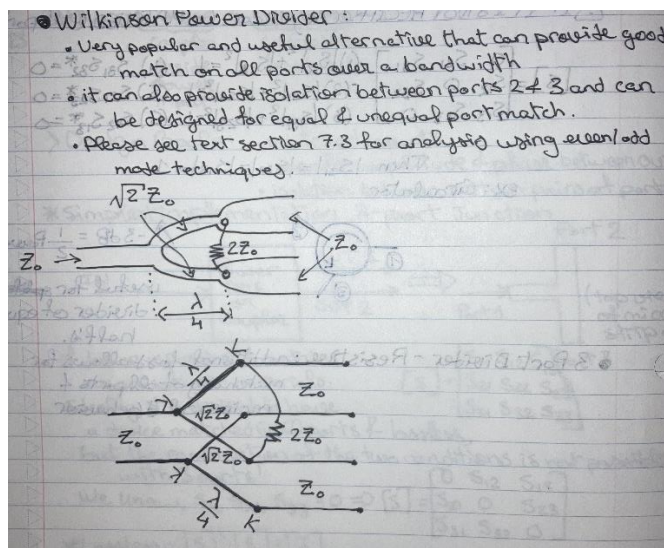 • Wilkinson Power Divider :
• Very popular and useful alternative that can provide good
match on all ports over a bandwidth
• it can also provide isolation between ports 2 & 3 and can
be designed for equal & unequal port match.
• Please see text section 7.3 for analysis using even/odd
mode techniques.
√2 Z₀
2Z₀
Z₀
Z₀
λ/4
λ/4
Z₀
√2 Z₀
Z₀
2Z₀
√2 Z₀
Z₀
λ/4